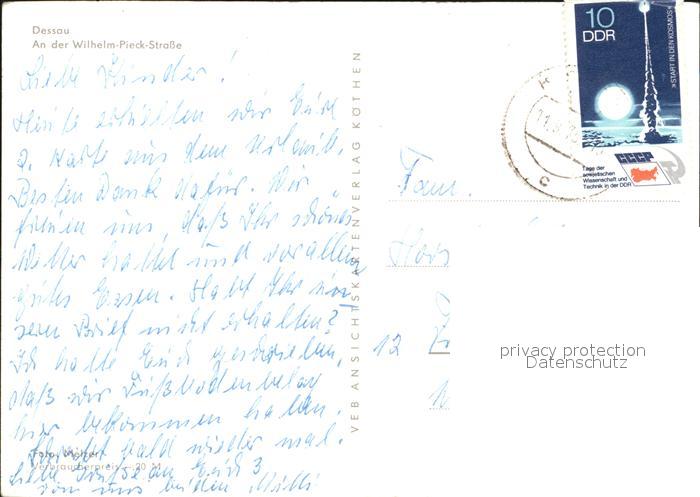 Dessau
An der Wilhelm-Pieck-Straße
Liebe Kinder!
Heute erhielten wir Eure
2. Karte aus dem Urlaub.
Besten Dank dafür. Wir
freuen uns, daß Ihr schönes
Wetter habt und vor allem
gutes Essen. Habt Ihr un-
seren Brief nicht erhalten?
Ich hatte Euch geschrieben,
daß wir Fußbodenbelag
hier bekommen haben.
Schreibt bald wieder mal.
Liebe Grüße an Euch 3
von uns beiden Mutti
Foto: Melzer
Verbraucherpreis — 20 M
VEB ANSICHTSKARTENVERLAG KÖTHEN
10
DDR
»START IN DEN KOSMOS«
CCCP
Tage der
sowjetischen
Wissenschaft und
Technik in der DDR
Fam.
Hors
12
privacy protection
Datenschutz